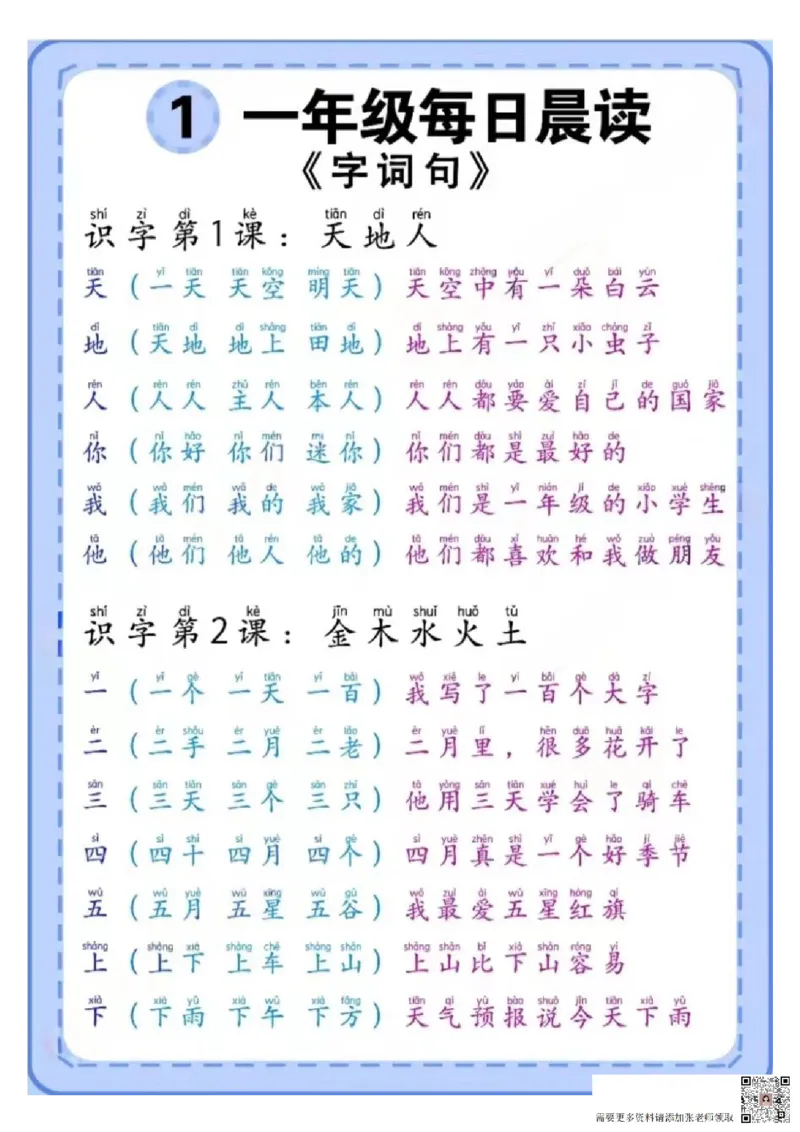 1 一年级每日晨读
《字词句》
shí zì dì kè tiān dì rén
识字第1课：天地人
tiān yī tiān tiān kōng míng tiān tiān kōng zhōng yǒu yī duǒ bái yún
天（一天 天空 明天）天空中有一朵白云
dì tiān dì dì shàng tián dì dì shàng yǒu yī zhī xiǎo chóng zǐ
地（天地 地上 田地）地上有一只小虫子
rén rén rén zhǔ rén běn rén rén rén dōu yào ài zì jǐ de guó jiā
人（人人 主人 本人）人人都要爱自己的国家
nǐ nǐ hǎo nǐ mén mí nǐ nǐ mén dōu shì zuì hǎo de
你（你好 你们 迷你）你们都是最好的
wǒ wǒ mén wǒ de wǒ jiā wǒ mén shì yī nián jí de xiǎo xué shēng
我（我们 我的 我家）我们是一年级的小学生
tā tā mén tā rén tā de tā mén dōu xǐ huān hé wǒ zuò péng yǒu
他（他们 他人 他的）他们都喜欢和我做朋友
shí zì dì kè jīn mù shuǐ huǒ tǔ
识字第2课：金木水火土
yī yī gè yī tiān yī bǎi wǒ xiě le yī bǎi gè dà zì
一（一个 一天 一百）我写了一百个大字
èr èr shǒu èr yuè èr lǎo èr yuè lǐ hěn duō huā kāi le
二（二手 二月 二老）二月里，很多花开了
sān sān tiān sān gè sān zhī tā yòng sān tiān xué huì le qí chē
三（三天 三个 三只）他用三天学会了骑车
sì sì shí sì yuè sì gè sì yuè zhēn shì yī gè hǎo jì jié
四（四十 四月 四个）四月真是一个好季节
wǔ wǔ yuè wǔ xīng wǔ gǔ wǒ zuì ài wǔ xīng hóng qí
五（五月 五星 五谷）我最爱五星红旗
shàng shàng xià shàng chē shàng shān shàng shān bǐ xià shān róng yì
上（上下 上车 上山）上山比下山容易
xià xià yǔ xià wǔ xià fāng tiān qì yù bào shuō jīn tiān xià yǔ
下（下雨 下午 下方）天气预报说今天下雨
需要更多资料请添加张老师领取